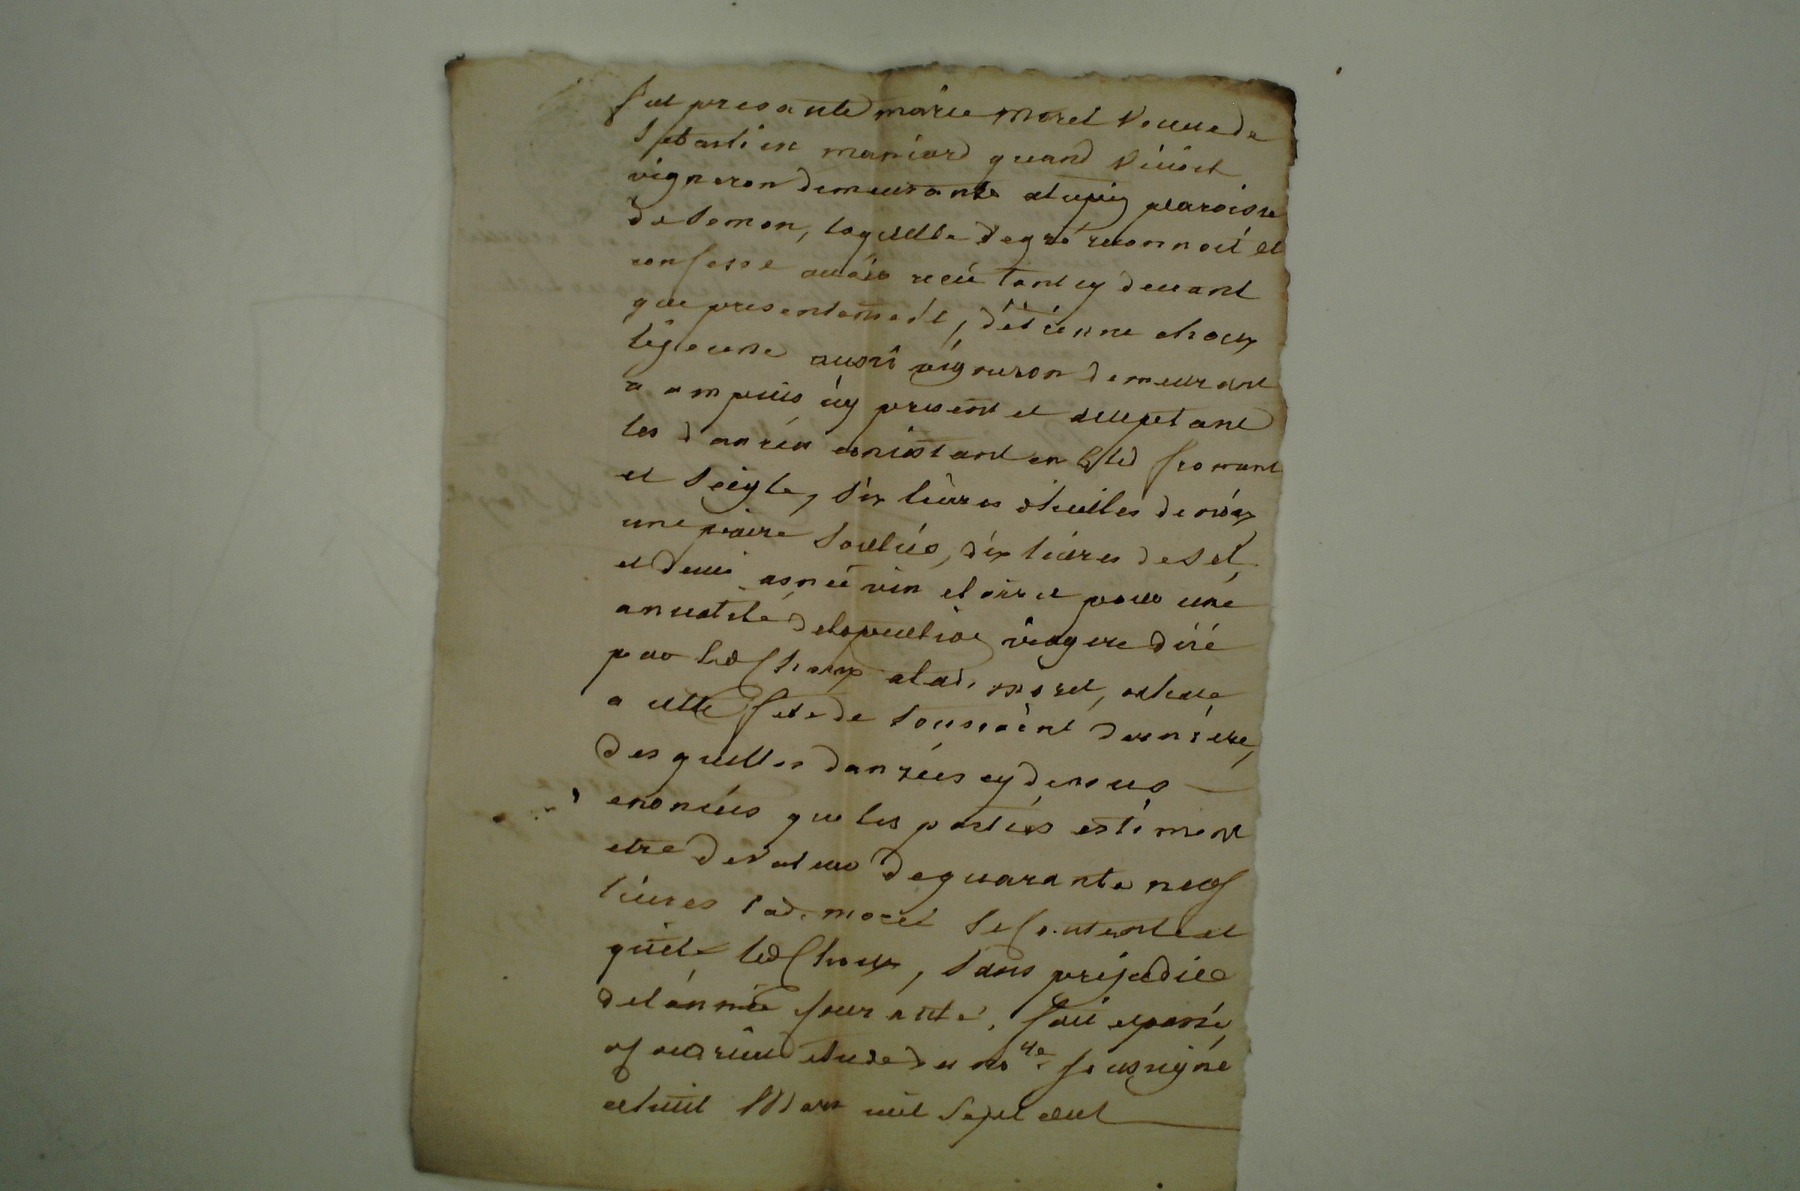 fut presante marie morel veuve de
Sebastien maniard quand vivoit
vigneron demeurante a tupin paroisse
de Semon, laquelle de gré reconnoit et
confesse avoir reçu tant cy devant
que presentement, d'étienne choux
le jeune aussi vigneron demeurant
a ampuis icy present et acceptant
les danrées consistant en bled froment
et seigle, six livres d'huilles de noix
une paire souliés, dix livres de sel,
et demi asnée vin clairet pour une
annualité de la pension viagere düe
par led Choux a lad. morel, echue
a cette feste de toussaint derniere,
desquelles danrées cy dessus
enoncées que les parties estiment
etre de valeur de quarante neuf
livres lad. morel se contente et
quitte led Choux, sans prejudice
de l'année courante. fait et passé
a condrieu etude du no.re soussigné
et huit Mars mil sept cent